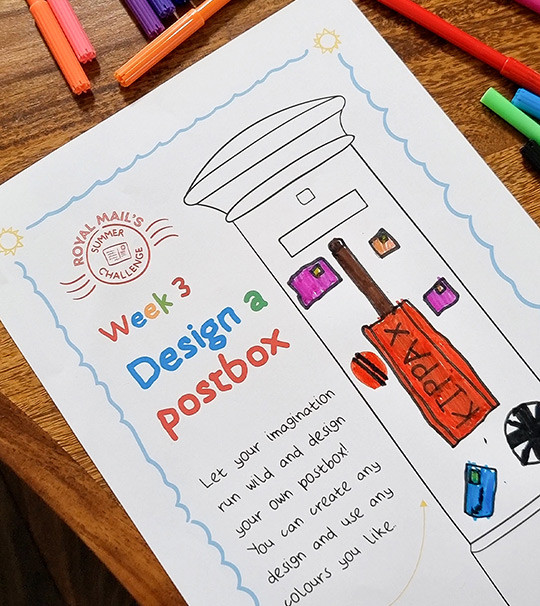 ROYAL MAIL'S
SUMMER
CHALLENGE
Week 3
Design a
postbox
Let your imagination
run wild and design
your own postbox!
You can create any
design and use any
colours you like.
KIPPAX